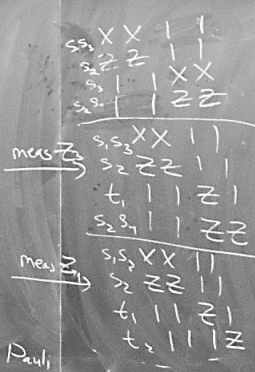 SS₃ X X 1 1
S₂ Z Z 1 1
S₃ 1 1 X X
S₂S₄ 1 1 Z Z
meas Z₃ S₁S₃ X X 1 1
S₂ Z Z 1 1
t₁ 1 1 Z 1
S₂S₄ 1 1 Z Z
meas Z₄ S₁S₃ X X 1 1
S₂ Z Z 1 1
t₁ 1 1 Z 1
t₂ 1 1 1 Z
Pauli